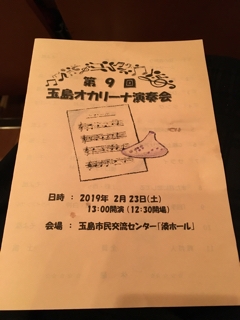 第9回
玉島オカリーナ演奏会
日時 : 2019年 2月23日(土)
13:00開演 (12:30開場)
会場 : 玉島市民交流センター「湊ホール」